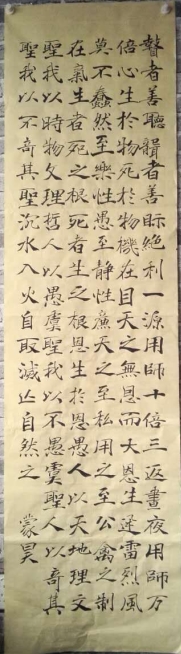 瞽者善聽聾者善眎絕利一源用師十倍三返晝夜用師万
倍心生於物死於物機在目天之無恩而大恩生迅雷烈風
莫不蠢然至樂性愚至静性廉天之至私用之至公禽之制
在氣生者死之根死者生之根恩生於恩愚人以天地理文
聖我以時物文理哲人以愚虞聖我以不愚虞聖人以奇其
聖我以不奇其聖沉水入火自取滅亡自然之 蒙昊